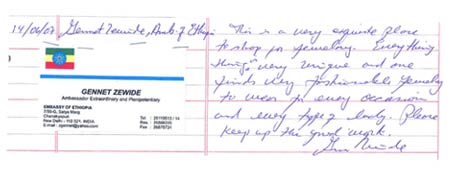 14/06/07 Gennet Zewide, Amb. of Ethiopi
GENNET ZEWIDE
Ambassador Extraordinary and Plenipotentiary
EMBASSY OF ETHIOPIA
7/50-G, Satya Marg
Chanakyapuri
New Delhi - 110 021, INDIA
E.mail : zgennet@yahoo.com
Tel :
Res :
Fax :
This is a very exquisite place
to shop for jewelery. Everything
very unique and one
finds very fashionable jewelry
to wear to every occasion
and every type of lady. Please
keep up the good work.